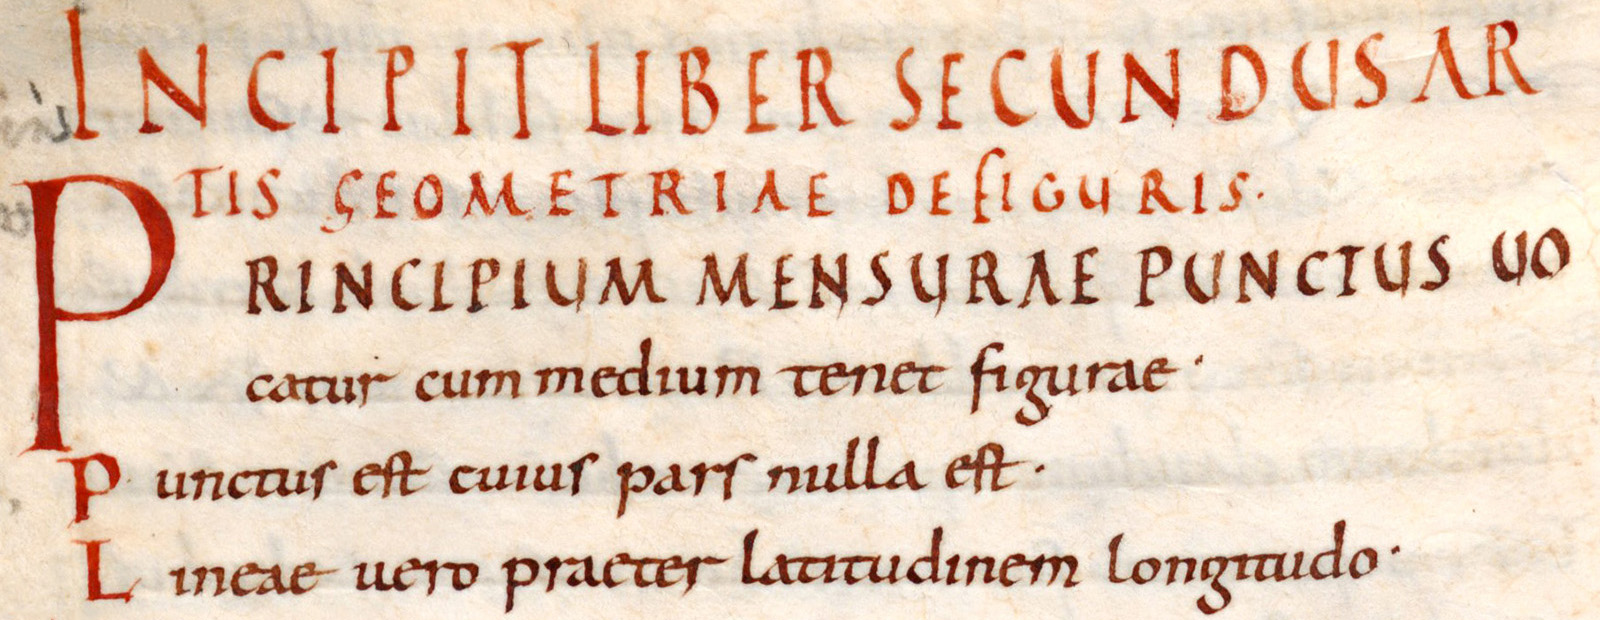 INCIPIT LIBER SECUNDUS AR
TIS GEOMETRIAE DE FIGURIS.
PRINCIPIUM MENSURAE PUNCTUS UO
catur cum medium tenet figurae·
Punctus est cuius pars nulla est·
Lineae uero praeter latitudinem longitudo·